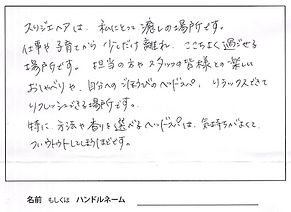 スリジエヘアは、私にとって癒しの場所です。
仕事や子育てから少しだけ離れ、ここちよく過ごせる
場所です。担当の方やスタッフの皆様との楽しい
おしゃべりや、自分へのごほうび、リラックスできて
リフレッシュできる場所です。
特に、方法や香りを選べるヘッドスパは、気持ちがよくて、
ついウトウトしてしまうほどです。
名前 もしくは ハンドルネーム